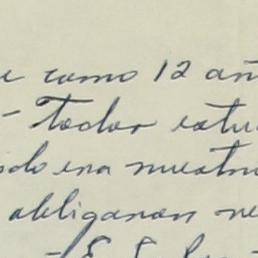 e como 12 añ
- Todos estu
do era nuestr
obliganan ne